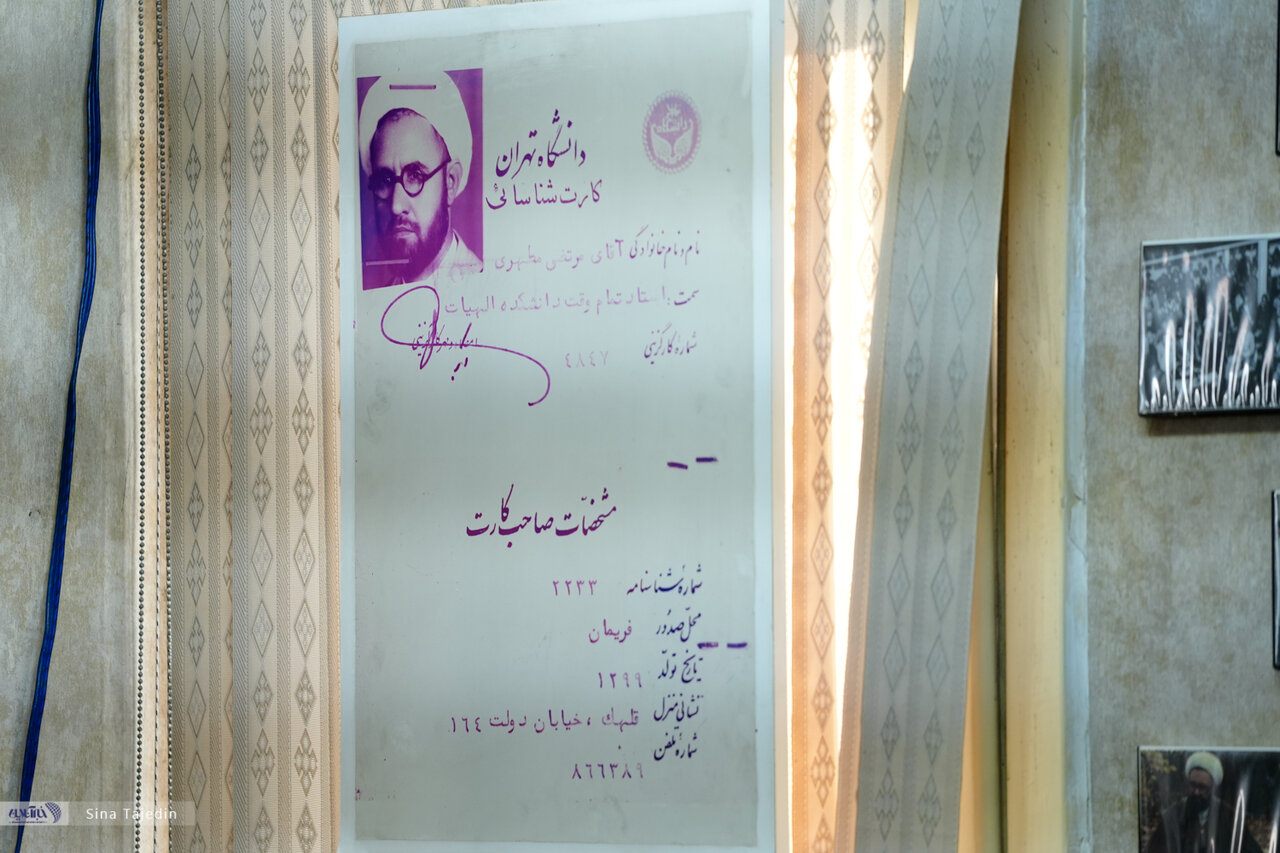 دانشگاه تهران
کارت شناسائی
نام و نام خانوادگی آقای مرتضی مطهری
سمت: استاد تمام وقت دانشکده الهیات
شمارهٔ کارگزینی ٤٨٤٧
مشخصات صاحب کارت
شمارهٔ شناسنامه ۲۲۳۳
محل صدور فریمان
تاریخ تولد ۱۲۹۹
نشانی منزل قلهك ، خیابان دولت ١٦٤
شمارهٔ تلفن ٨٦٦٣٨٩
Sina Tajedin